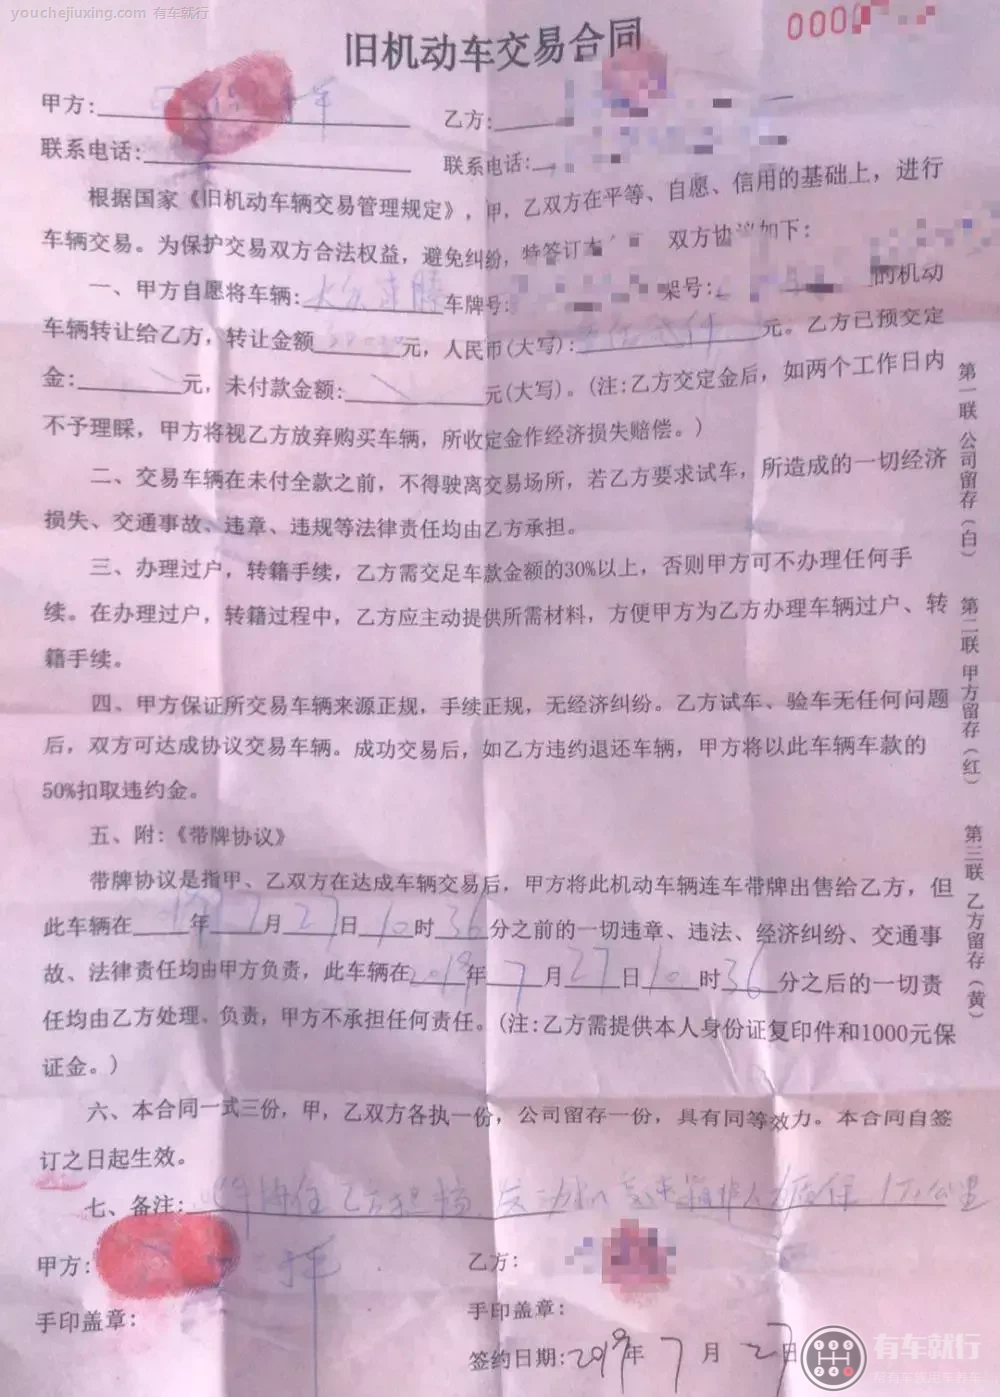 youchejiuxing.com 有车就行
000
旧机动车交易合同
甲方:
乙方:
联系电话:
联系电话:
根据国家《旧机动车辆交易管理规定》，甲，乙双方在平等、自愿、信用的基础上，进行
车辆交易。为保护交易双方合法权益，避免纠纷，特签订 双方协议如下：
一、甲方自愿将车辆:大众速腾车牌号: 架号: 的机动
车辆转让给乙方，转让金额 元，人民币(大写): 元。乙方已预交定
金: 元，未付款金额: 元(大写)。(注:乙方交定金后，如两个工作日内
不予理睬，甲方将视乙方放弃购买车辆，所收定金作经济损失赔偿。)
二、交易车辆在未付全款之前，不得驶离交易场所，若乙方要求试车，所造成的一切经济
损失、交通事故、违章、违规等法律责任均由乙方承担。
三、办理过户，转籍手续，乙方需交足车款金额的30%以上，否则甲方可不办理任何手
续。在办理过户，转籍过程中，乙方应主动提供所需材料，方便甲方为乙方办理车辆过户、转
籍手续。
四、甲方保证所交易车辆来源正规，手续正规，无经济纠纷。乙方试车、验车无任何问题
后，双方可达成协议交易车辆。成功交易后，如乙方违约退还车辆，甲方将以此车辆车款的
50%扣取违约金。
五、附:《带牌协议》
带牌协议是指甲、乙双方在达成车辆交易后，甲方将此机动车辆连车带牌出售给乙方，但
此车辆在19年7月27日10时36分之前的一切违章、违法、经济纠纷、交通事
故、法律责任均由甲方负责，此车辆在2019年7月27日10时36分之后的一切责
任均由乙方处理、负责，甲方不承担任何责任。(注:乙方需提供本人身份证复印件和1000元保
证金。)
六、本合同一式三份，甲，乙双方各执一份，公司留存一份，具有同等效力。本合同自签
订之日起生效。
七、备注: 乙方担 发动机 变速箱 质保1万公里
甲方:
乙方:
手印盖章:
手印盖章:
签约日期:2019年7月27日
第一联 公司留存（白）
第二联 甲方留存（红）
第三联 乙方留存（黄）
有车就行